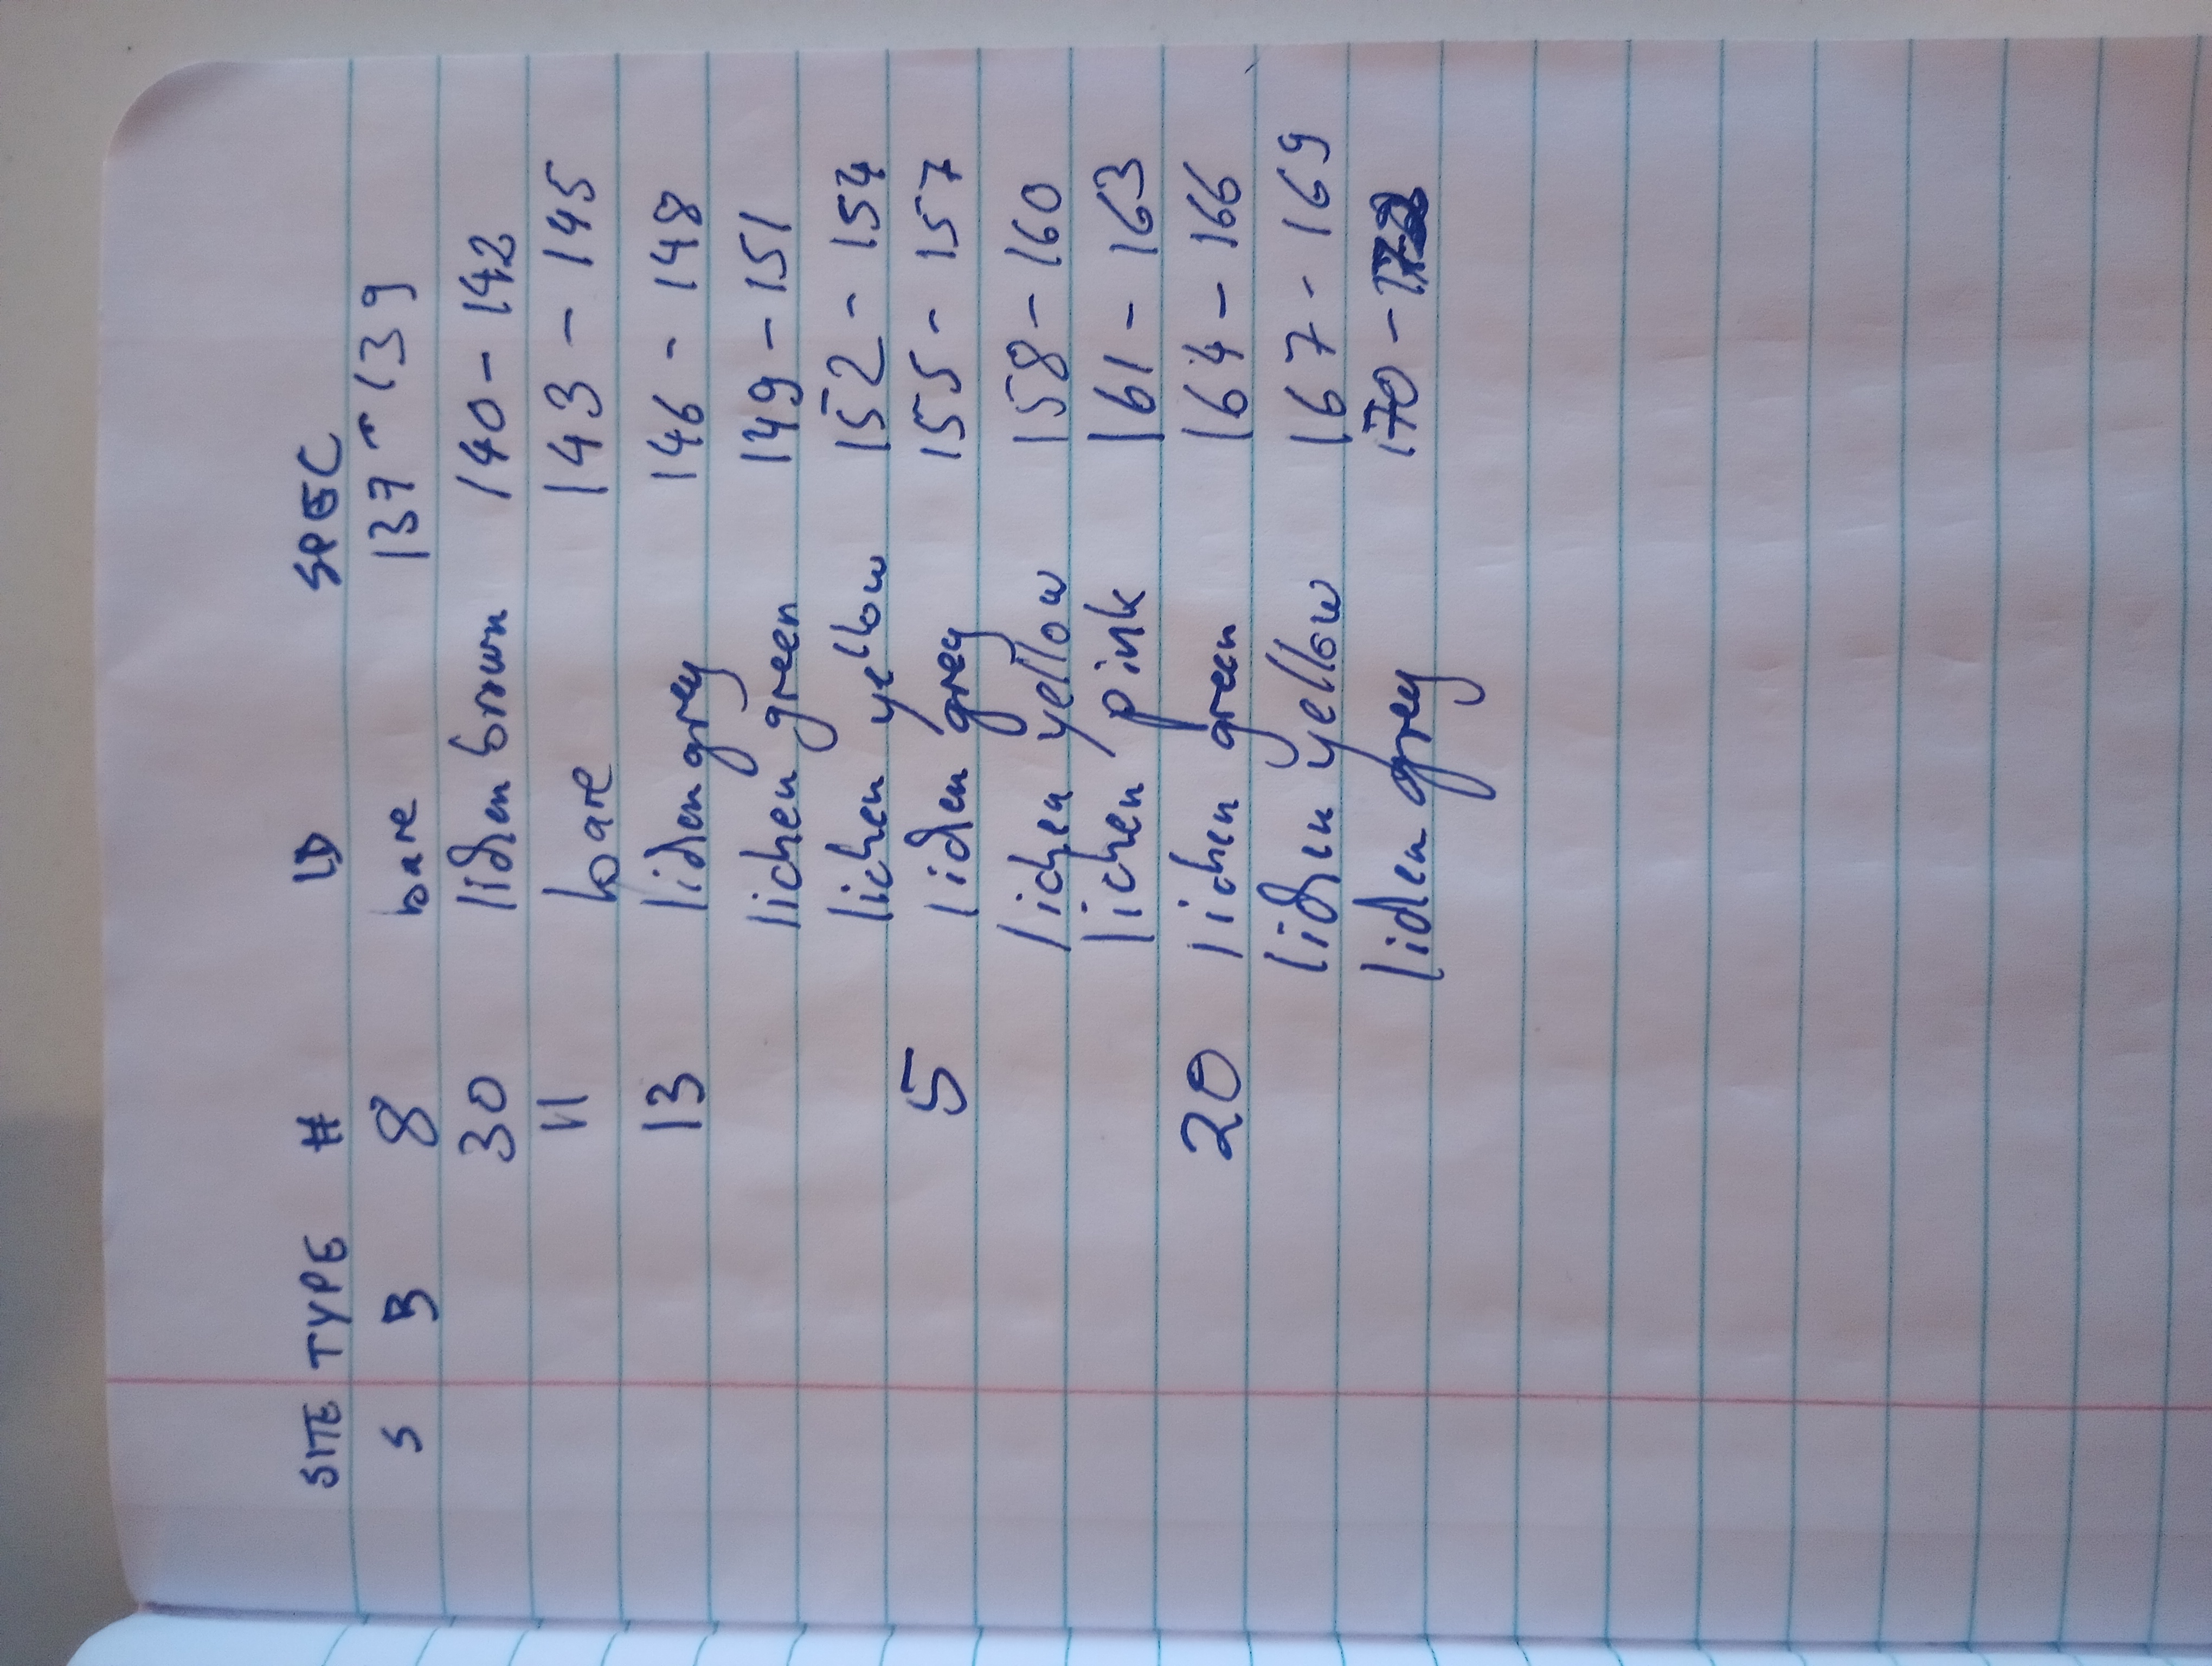 SITE TYPE # ID SPEC
S B 8 bare 137-139
30 lichen brown 140-142
11 bare 143-145
13 lichen grey 146-148
lichen green 149-151
lichen yellow 152-154
5 lichen grey 155-157
lichen yellow 158-160
lichen pink 161-163
20 lichen green 164-166
lichen yellow 167-169
lichen grey 170-172